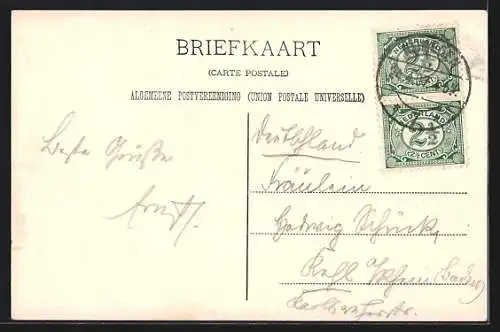 BRIEFKAART
(CARTE POSTALE)
ALGEMEENE POSTVEREENIGING (UNION POSTALE UNIVERSELLE)
NEDERLAND
2½
NEDERLAND
2½
CENT
Beste Grüße
Ernst.
Deutschland
Fräulein
Hedwig Schück,
Kehl a/Rhein (Baden)
Karlsruherstr.